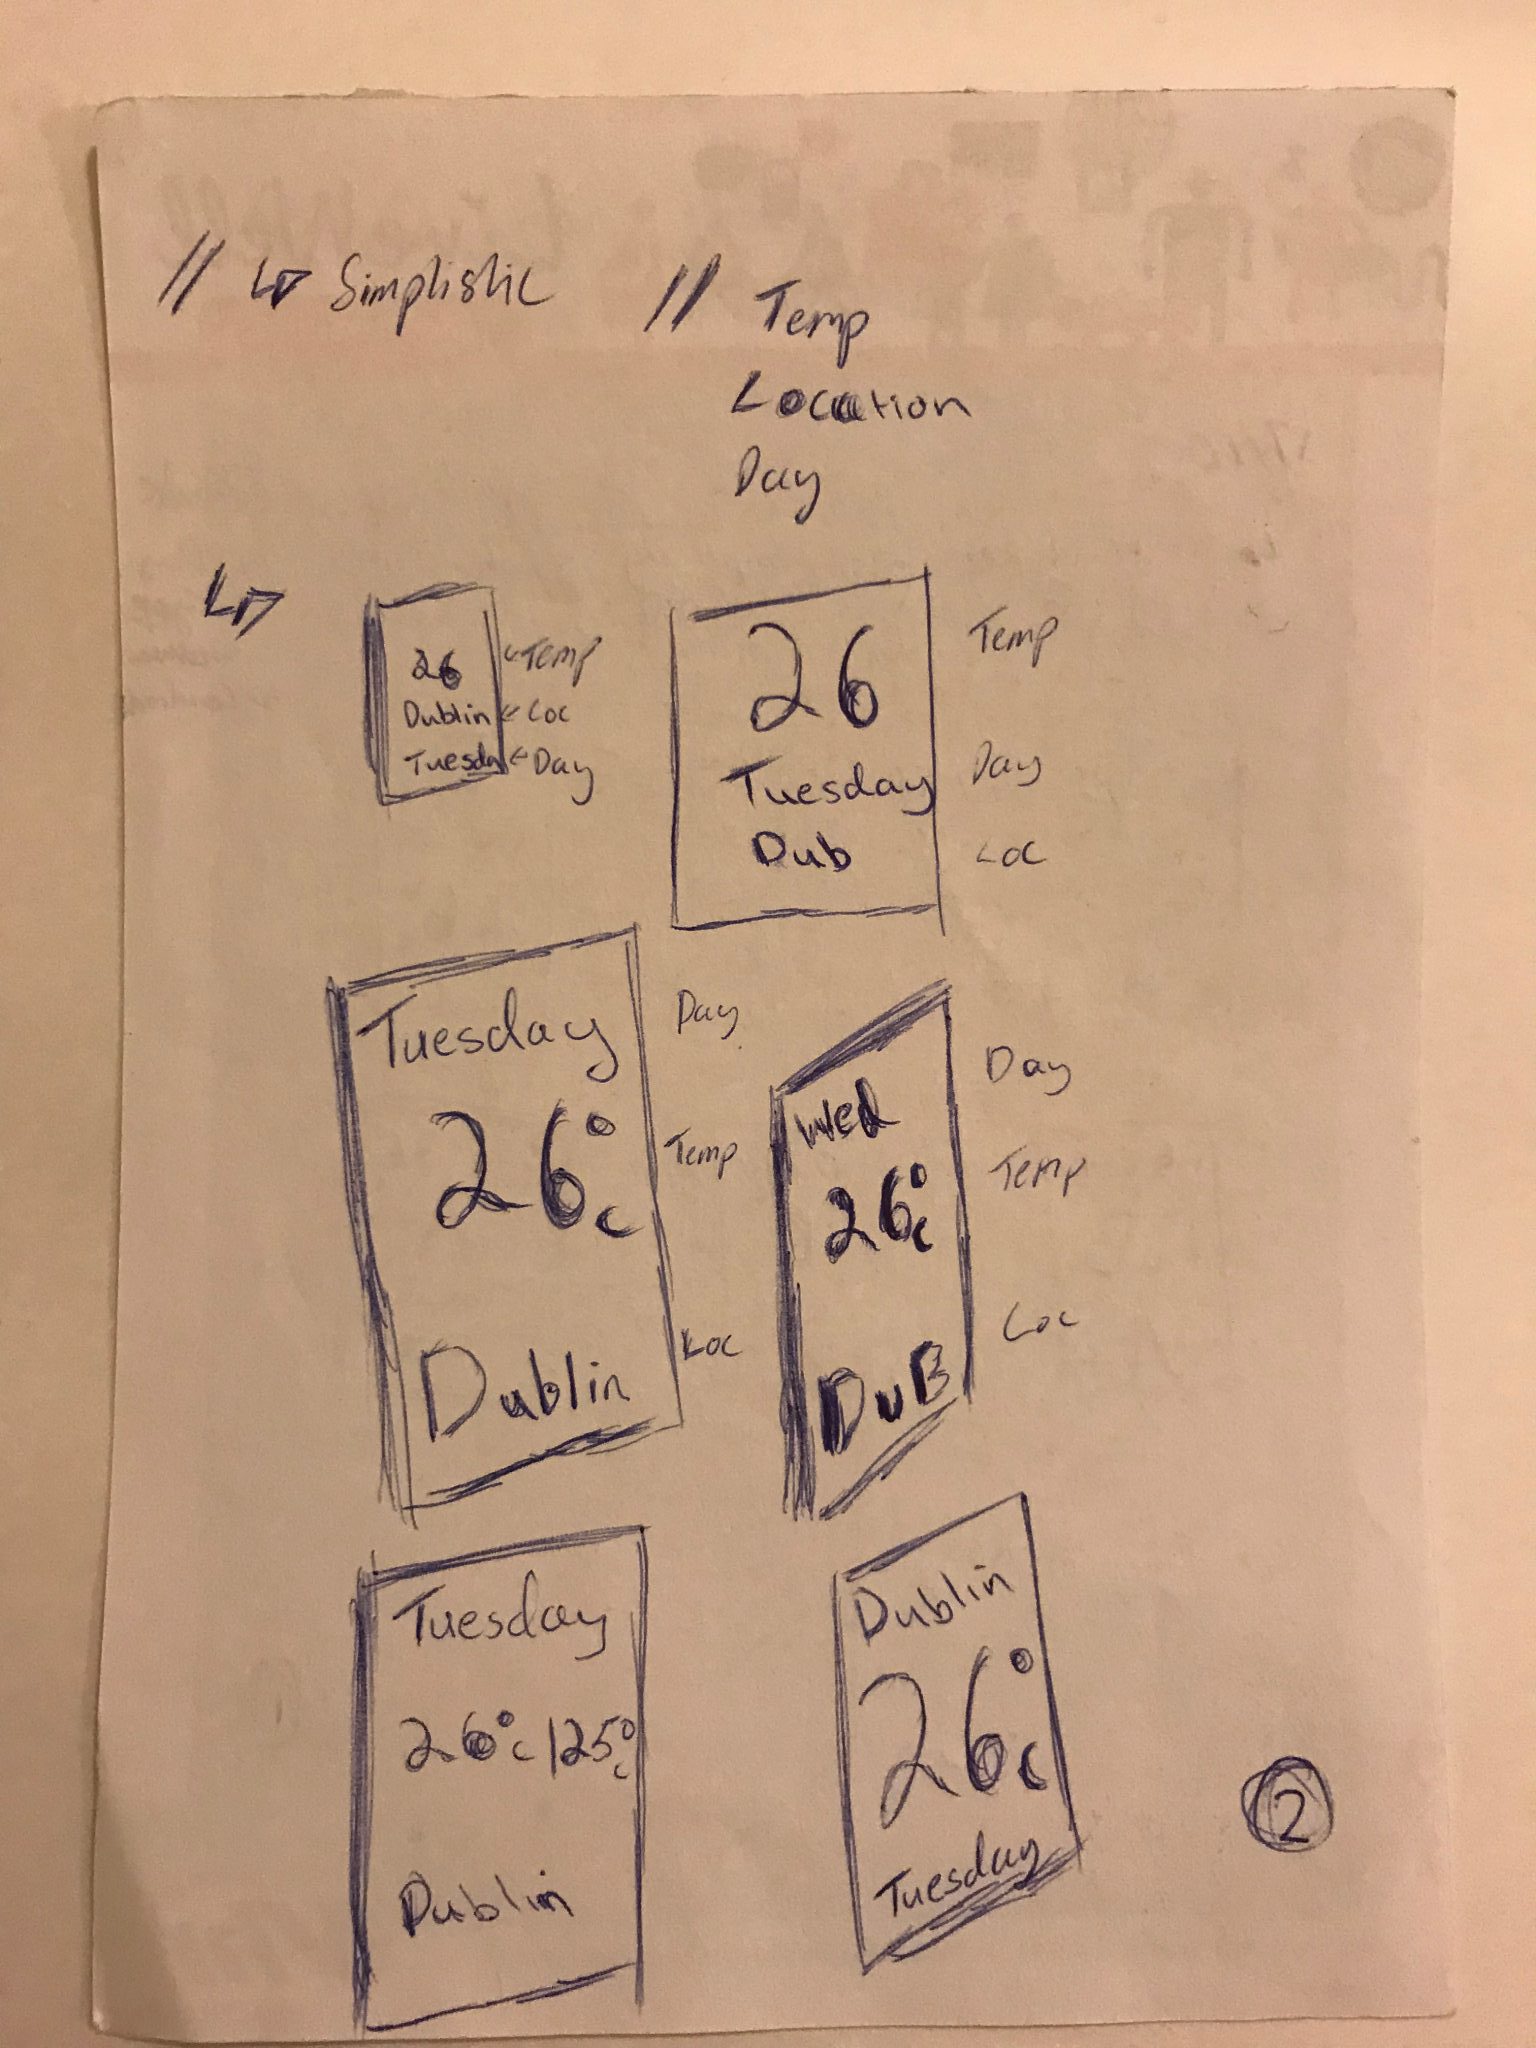 // ↳ Simplistic // Temp
Location
Day
↳
26 Temp
Dublin Loc
Tuesday Day
26 Temp
Tuesday Day
Dub Loc
Tuesday Day
26°c Temp
Dublin Loc
Wed Day
26°c Temp
DuB Loc
Tuesday
26°c |25°c
Dublin
Dublin
26°c
Tuesday
2